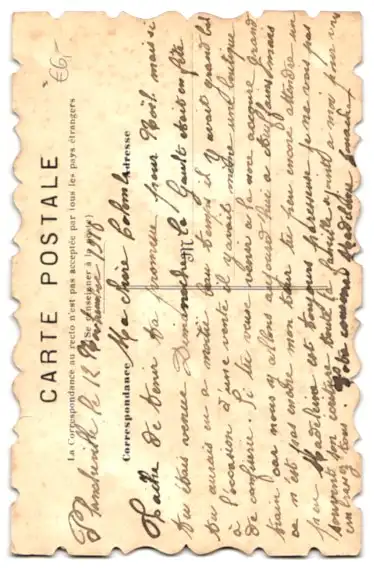 €6,-
CARTE POSTALE
La Correspondance au recto n'est pas acceptée par tous les pays étrangers
(Se renseigner à la poste)
le 12 Novembre
Correspondance
Adresse
Ma chère Colombe
M
Tâche de tenir ta promesse pour Noël mais si
tu étais venue Dimanche Le Gault était en fête
tu aurais eu a moitié beau temps il y avait grand bal
à l'occasion d'une vente il y avait même une boutique
de confiserie Si tu veux venir à la noce accours grand
train car nous y allons aujourd'hui a mais
ce n'est pas encore mon tour tu peu encore attendre un
peu Madeleine est toujours paresseuse je ne vois pas
souvent son écriture toute la famille a moi pour
embrasser tous. Votre cousine Madeleine